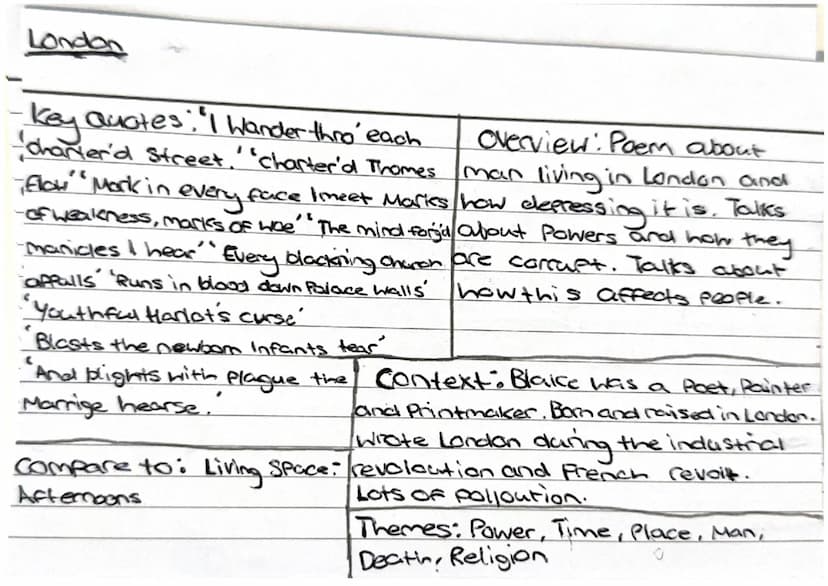 London
Key Quotes: 'I Wander thro' each
'charter'd Street.' 'Charter'd Thames
flow' 'Mark in every face I meet Marks
of weakness, marks of woe' 'The mind-forg'd
manicles I hear' 'Every blackning church
appalls' 'Runs in blood down Palace walls'
'Youthful Harlot's curse'
'Blasts the newborn Infants tear'
'And blights with plague the
Marrige hearse.'
Overview: Poem about
man living in London and
how depressing it is. Talks
about Powers and how they
are corrupt. Talks about
how this affects people.
Context: Blake was a Poet, Painter
and Printmaker. Born and raised in London.
Wrote London during the industrial
revoloution and French revolt.
Lots of polloution.
Compare to: Living Space:
Afternoons
Themes: Power, Time, Place, Man,
Death, Religion